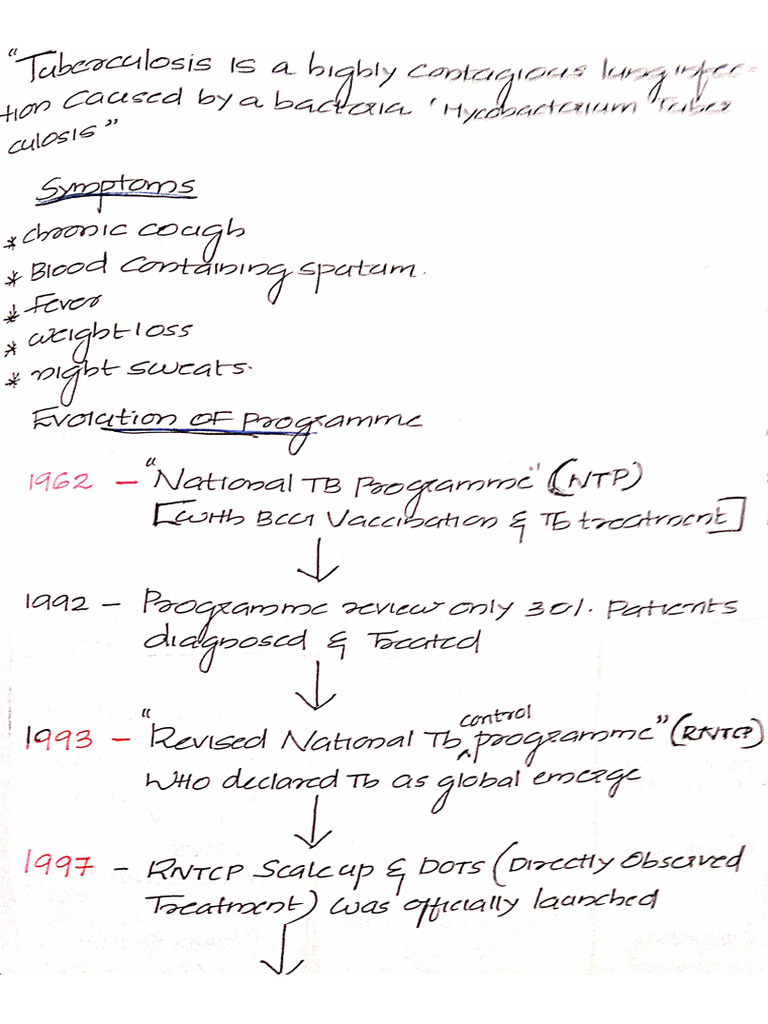 "Tuberculosis is a highly contagious lung infec-
tion caused by a bacteria 'Mycobacterium Tuber
culosis"
Symptoms
* chronic cough
* Blood containing sputum.
* fever
* weight loss
* night sweats.
Evolution of programme
1962 - "National TB Programme" (NTP)
[with BCG Vaccibation & Tb treatment]
↓
1992 - Programme review only 30%. Patients
diagnosed & Treated
↓
1993 - "Revised National Tb control programme" (RNTCP)
WHO declared Tb as global emerge
↓
1997 - RNTCP Scale up & DOTS (Directly Observed
Treatment) was officially launched
↓